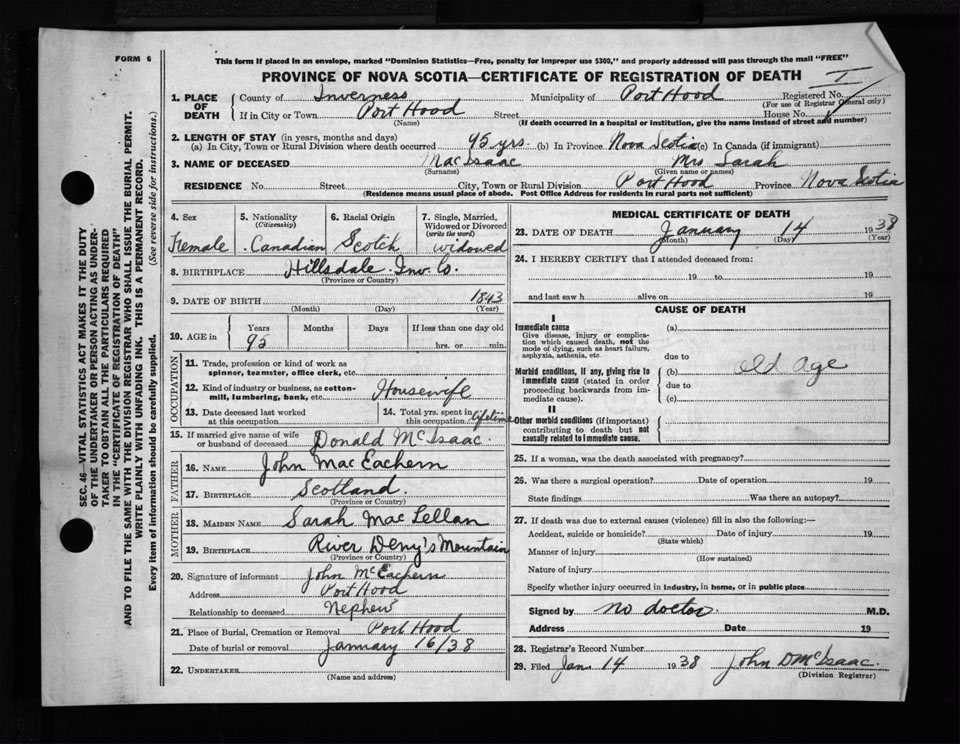 FORM 6
This form if placed in an envelope, marked "Dominion Statistics—Free, penalty for improper use $300," and properly addressed will pass through the mail "FREE"
PROVINCE OF NOVA SCOTIA—CERTIFICATE OF REGISTRATION OF DEATH
I
1. PLACE OF DEATH County of Inverness Municipality of Port Hood Registered No.
(For use of Registrar General only)
If in City or Town Port Hood Street House No.
(Name) (If death occurred in a hospital or institution, give the name instead of street and number)
2. LENGTH OF STAY (in years, months and days)
(a) In City, Town or Rural Division where death occurred 95 yrs. (b) In Province Nova Scotia (c) In Canada (if immigrant)
3. NAME OF DECEASED MacIsaac Mrs Sarah
(Surname) (Given name or names)
RESIDENCE No. Street City, Town or Rural Division Port Hood Province Nova Scotia
(Residence means usual place of abode. Post Office Address for residents in rural parts not sufficient)
4. Sex 5. Nationality (Citizenship) 6. Racial Origin 7. Single, Married, Widowed or Divorced (write the word)
Female Canadian Scotch widowed
8. BIRTHPLACE Hillsdale Inv. Co.
(Province or Country)
9. DATE OF BIRTH 1843
(Month) (Day) (Year)
10. AGE in Years Months Days If less than one day old
95 hrs. or min.
OCCUPATION
11. Trade, profession or kind of work as spinner, teamster, office clerk, etc.
12. Kind of industry or business, as cotton-mill, lumbering, bank, etc. Housewife
13. Date deceased last worked at this occupation
14. Total yrs. spent in this occupation lifetime
15. If married give name of wife or husband of deceased Donald McIsaac.
FATHER
16. NAME John MacEachern
17. BIRTHPLACE Scotland.
(Province or Country)
MOTHER
18. MAIDEN NAME Sarah MacLellan
19. BIRTHPLACE River Deny's Mountain
(Province or Country)
20. Signature of informant John McEachern
Address Port Hood
Relationship to deceased Nephew
21. Place of Burial, Cremation or Removal Port Hood
Date of burial or removal January 16/38
22. UNDERTAKER
(Name and address)
MEDICAL CERTIFICATE OF DEATH
23. DATE OF DEATH January 14 1938
(Month) (Day) (Year)
24. I HEREBY CERTIFY that I attended deceased from:
19 to 19
and last saw h alive on 19
CAUSE OF DEATH
I
Immediate cause (a)
Give disease, injury or complication which caused death, not the mode of dying, such as heart failure, asphyxia, asthenia, etc
due to
Morbid conditions, if any, giving rise to immediate cause (stated in order proceeding backwards from immediate cause).
(b) old age
due to
(c)
II
Other morbid conditions (if important) contributing to death but not causally related to immediate cause.
25. If a woman, was the death associated with pregnancy?
26. Was there a surgical operation? Date of operation 19
State findings Was there an autopsy?
27. If death was due to external causes (violence) fill in also the following:—
Accident, suicide or homicide? Date of injury 19
(State which)
Manner of injury
(How sustained)
Nature of injury
Specify whether injury occurred in industry, in home, or in public place
Signed by no doctor M.D.
Address Date 19
28. Registrar's Record Number
29. Filed Jan. 14 1938 John D McIsaac.
(Division Registrar)
SEC. 46—VITAL STATISTICS ACT MAKES IT THE DUTY
OF THE UNDERTAKER OR PERSON ACTING AS UNDER-
TAKER TO OBTAIN ALL THE PARTICULARS REQUIRED
IN THE "CERTIFICATE OF REGISTRATION OF DEATH"
AND TO FILE THE SAME WITH THE DIVISION REGISTRAR WHO SHALL ISSUE THE BURIAL PERMIT.
WRITE PLAINLY WITH UNFADING INK. THIS IS A PERMANENT RECORD.
Every item of information should be carefully supplied. (See reverse side for instructions.)